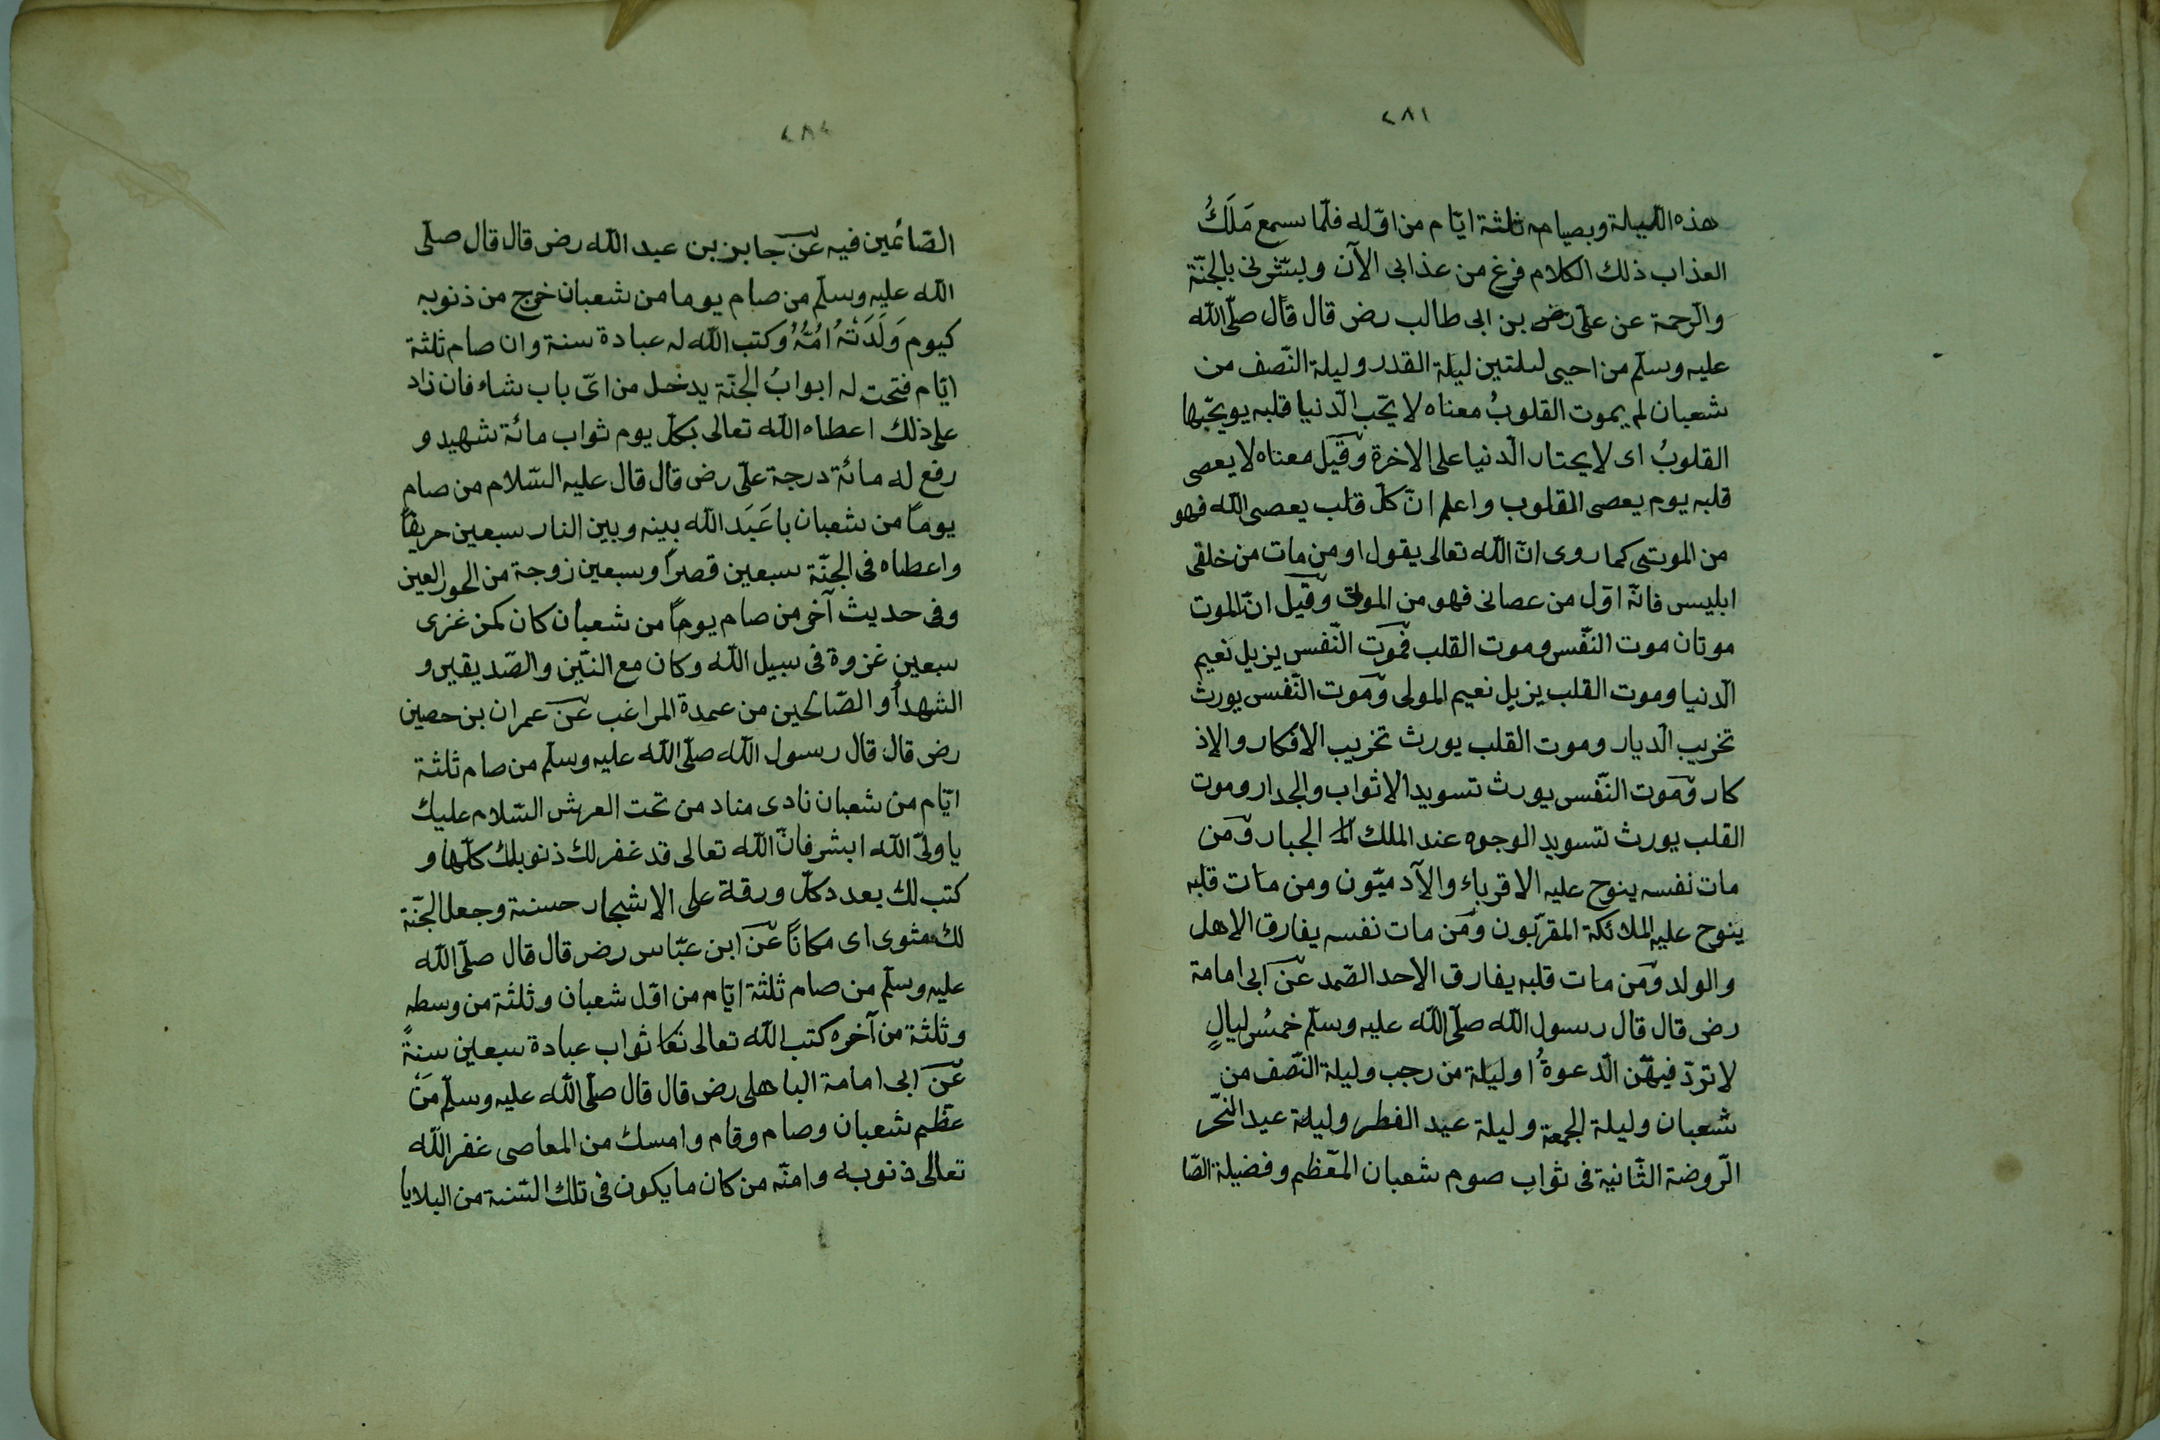 ٢٨١
هذه الليلة وبصيامه ثلثة ايّام من اوّله فلمّا سمع مَلَكُ
العذاب ذلك الكلام فرغ من عذابى الآن وبشّرنى بالجنّة
والرّحمة عن علىّ رض بن ابى طالب رض قال قال صلّى الله
عليه وسلّم من احيى ليلتين ليلة القدر وليلة النّصف من
شعبان لم يموت القلوبُ معناه لا يحّب الّدنيا قلبه يويحّبها
القلوبُ اى لا يختار الّدنيا على الاخرة وقيل معناه لا يعصى
قلبه يوم يعصى القلوب واعلم انّ كلّ قلب يعصى الله فهو
من الموتى كما روى انّ الله تعالى يقول اومن مات من خلقى
ابليس فانّه اوّل من عصانى فهو من الموتى وقيل انّ الموت
موتان موت النّفس وموت القلب فموت النّفس يزيل نعيم
الّدنيا وموت القلب يزيل نعيم المولى وموت النّفس يورث
تخريب الّديار وموت القلب يورث تخريب الافكار والاذ
كار وموت النّفس يورث تسويد الاثواب والجدار وموت
القلب يورث تسويد الوجوه عند الملك الجبار ومن
مات نفسه ينوح عليه الاقرباء والآدميّون ومن مات قلبه
ينوح عليه الملائكة المقرّبون ومن مات نفسه يفارق الاهل
والولد ومن مات قلبه يفارق الاحد الصّمد عن ابى امامة
رض قال قال رسول الله صلّى الله عليه وسلّم خمسُ ليالٍ
لا تردّ فيهّن الّدعوةُ اوليلة من رجب وليلة النّصف من
شعبان وليلة الجمعة وليلة عيد الفطر وليلة عيد النّحر
الّروضة الثّانية فى ثواب صوم شعبان المعّظم وفضيلة الصّا
٢٨٢
الصّائمين فيه عن جابر بن عبد الله رض قال قال صلّى
الله عليه وسلّم من صام يوما من شعبان خرج من ذنوبه
كيوم وَلَدَتْهُ اُمُّهُ وكتب الله له عبادة سنة وان صام ثلثة
ايّام فتحت له ابوابُ الجنّة يدخل من اىّ باب شاء فان زاد
على ذلك اعطاه الله تعالى بكلّ يوم ثواب مائة شهيد و
رفع له مائة درجة علىّ رض قال قال عليه السّلام من صام
يوماً من شعبان باعَبَد الله بينه وبين النار سبعين حريفاً
واعطاه فى الجنّة سبعين قصراً وسبعين زوجة من الحور العين
وفى حديث آخر من صام يوماً من شعبان كان كمن غزى
سبعين غزوة فى سبيل الله وكان مع النّبّين والصّديقين و
الشهدأ والصّالحين من عمدة المراغب عن عمران بن حصين
رض قال قال رسول الله صلّى الله عليه وسلّم من صام ثلثة
ايّام من شعبان نادى مناد من تحت العرش السّلام عليك
يا ولىّ الله ابشر فانّ الله تعالى قد غفر لك ذنوبك كلّها و
كتب لك بعدد كلّ ورقة على الاشجار حسنة وجعل الجّنة
لك مثوى اى مكاناً عن ابن عبّاس رض قال قال صلّى الله
عليه وسلّم من صام ثلثة ايّام من اوّل شعبان وثلثة من وسطه
وثلثة من آخره كتب الله تعالى ثواب عبادة سبعين سنةً
عن ابى امامة الباهلى رض قال قال صلّى الله عليه وسلّم مَنْ
عظّم شعبان وصام وقام وامسك من المعاصى غفر الله
تعالى ذنوبه وامنّه من كان ما يكون فى تلك السّنة من البلايا